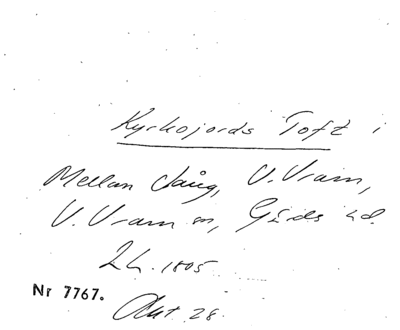 Kyrkojords Toft i
Mellan Vång, V. Vram,
V. Vram sn, Gärds hd.
LH. 1805
Nr 7767.
Akt 28.